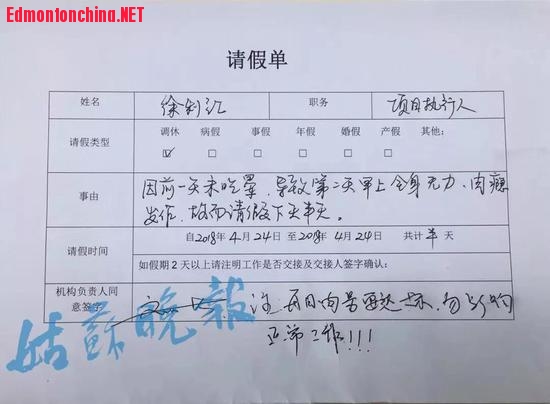 Edmontonchina.NET
请假单
姓名 徐利江 职务 项目执行人
请假类型 调休 病假 事假 年假 婚假 产假 其他:
☑ □ □ □ □ □
事由 因前一天未吃荤,导致第二天早上全身无力、肉瘾
发作,故而请假下午半天。
请假时间 自2018年4月24日至2018年4月24日 共计半天
如假期2天以上请注明工作是否交接及交接人签字确认:
机构负责人同
意签字 注:每日肉量要达标,勿影响
正常工作!!!
姑苏晚报